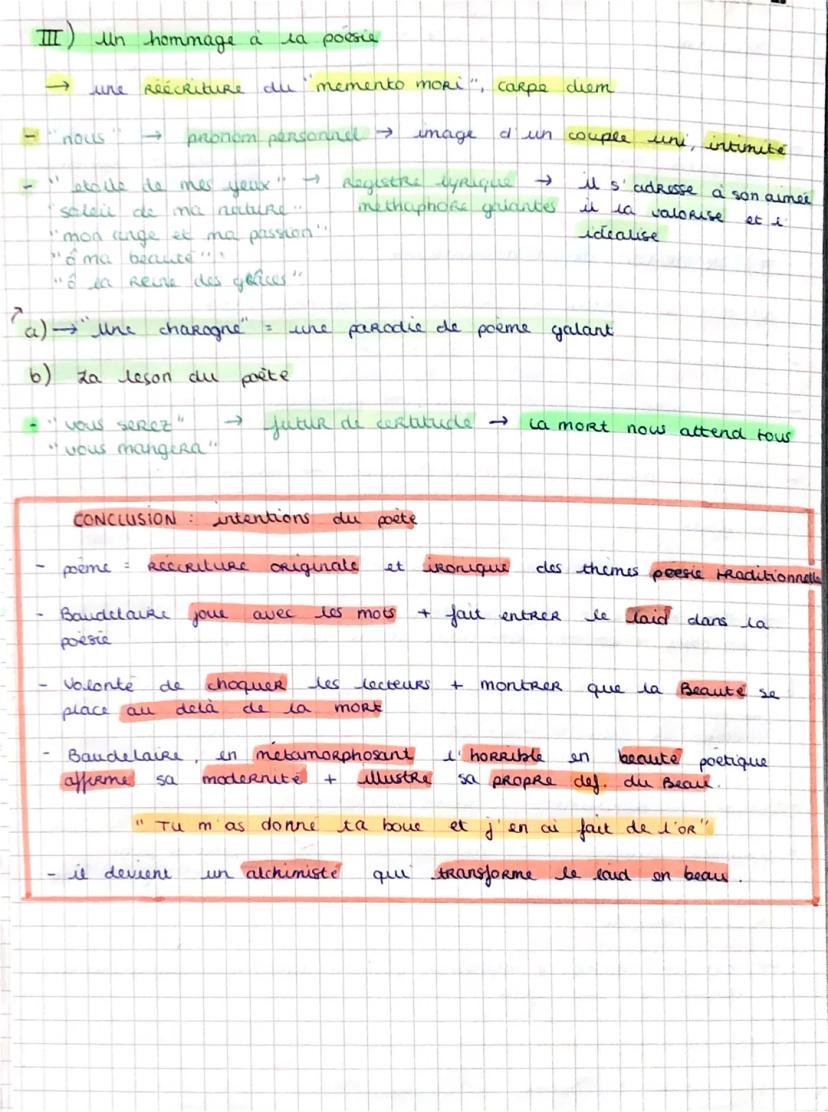 III) Un hommage à la poésie
→ une réécriture du "memento mori", carpe diem
- "nous" → pronom personnel → image d'un couple uni, intimité
- "etoile de mes yeux" → registre lyrique → il s'adresse à son aimée
"soleil de ma nature" méthaphore galantes il la valorise et l'
"mon ange et ma passion" idéalise
"ô ma beauté"
"ô la reine des grâces"
a) → "Une charogne" = une parodie de poème galant
b) La leson du poète
- "vous serez" → futur de certitude → la mort nous attend tous
"vous mangera"
CONCLUSION : intentions du poète
- poème = réécriture originale et ironique des thèmes poesie traditionnelle
- Baudelaire joue avec les mots + fait entrer le laid dans la
poésie
- Volonté de choquer les lecteurs + montrer que la Beauté se
place au delà de la mort
- Baudelaire, en métamorphosant l'horrible en beauté poétique
affirme sa modernité + illustre sa propre def. du Beau.
"Tu m'as donné ta boue et j'en ai fait de l'or"
- il devient un alchimiste qui transforme le laid en beau.